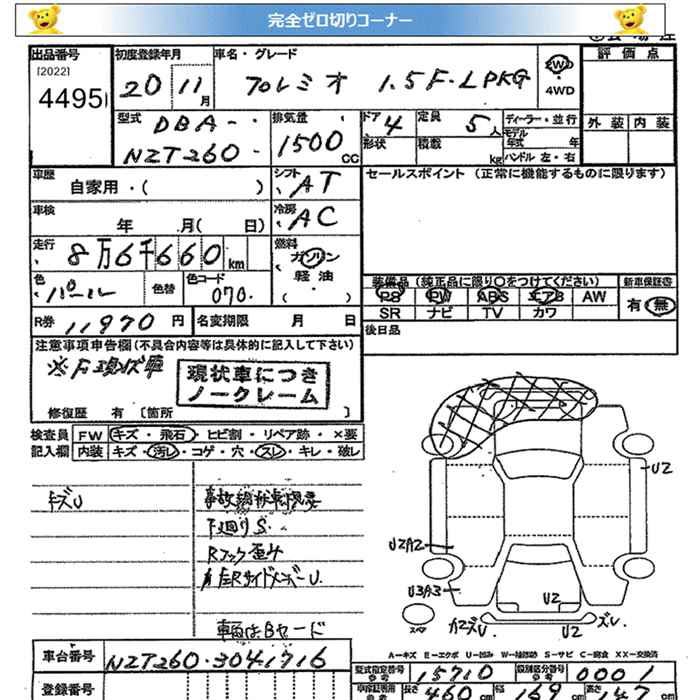 完全ゼロ切りコーナー
出品番号 初度登録年月 車名・グレード 評価点
[2022]
4495 20 11月 プレミオ 1.5F・LPKG 2WD
4WD
型式 排気量 ドア 定員 ディーラー・並行 外装 内装
DBA-・ 1500 4 5人 モデル年式 年
NZT260・ CC 形状 積載 kg ハンドル 左・右
車歴 シフト セールスポイント (正常に機能するものに限ります)
自家用・( ) AT
車検 冷房
年 月( 日) AC
走行 8万6千660km 燃料
ガソリン
軽油
( ・ )
色 パール 色替 色コード 070. 装備品 (純正品に限り〇をつけてください) 新車保証書
PS PW ABS エアB AW 有・無
SR ナビ TV カワ
R券 11970円 名変期限 月 日 後日品
注意事項申告欄 (不具合内容等は具体的に記入して下さい)
※F現状車 現状車につき
ノークレーム
修復歴 有 〔箇所 〕
検査員 FW キズ・飛石・ヒビ割・リペア跡・×要
記入欄 内装 キズ・汚レ・コゲ・穴・スレ・キレ・破レ
キズU
下廻りS.
Rフック歪み
U2
U2A2
U3A3
U2
スペア U2 ズレ.
車両はBヤード
A-キズ E-エクボ U-凹み W-補修跡 S-サビ C-腐食 XX-交換済
車台番号 NZT260-3041716
型式指定番号 15710 類別区分番号 0001
登録番号 長さ 460cm 幅 169cm 高さ 147cm